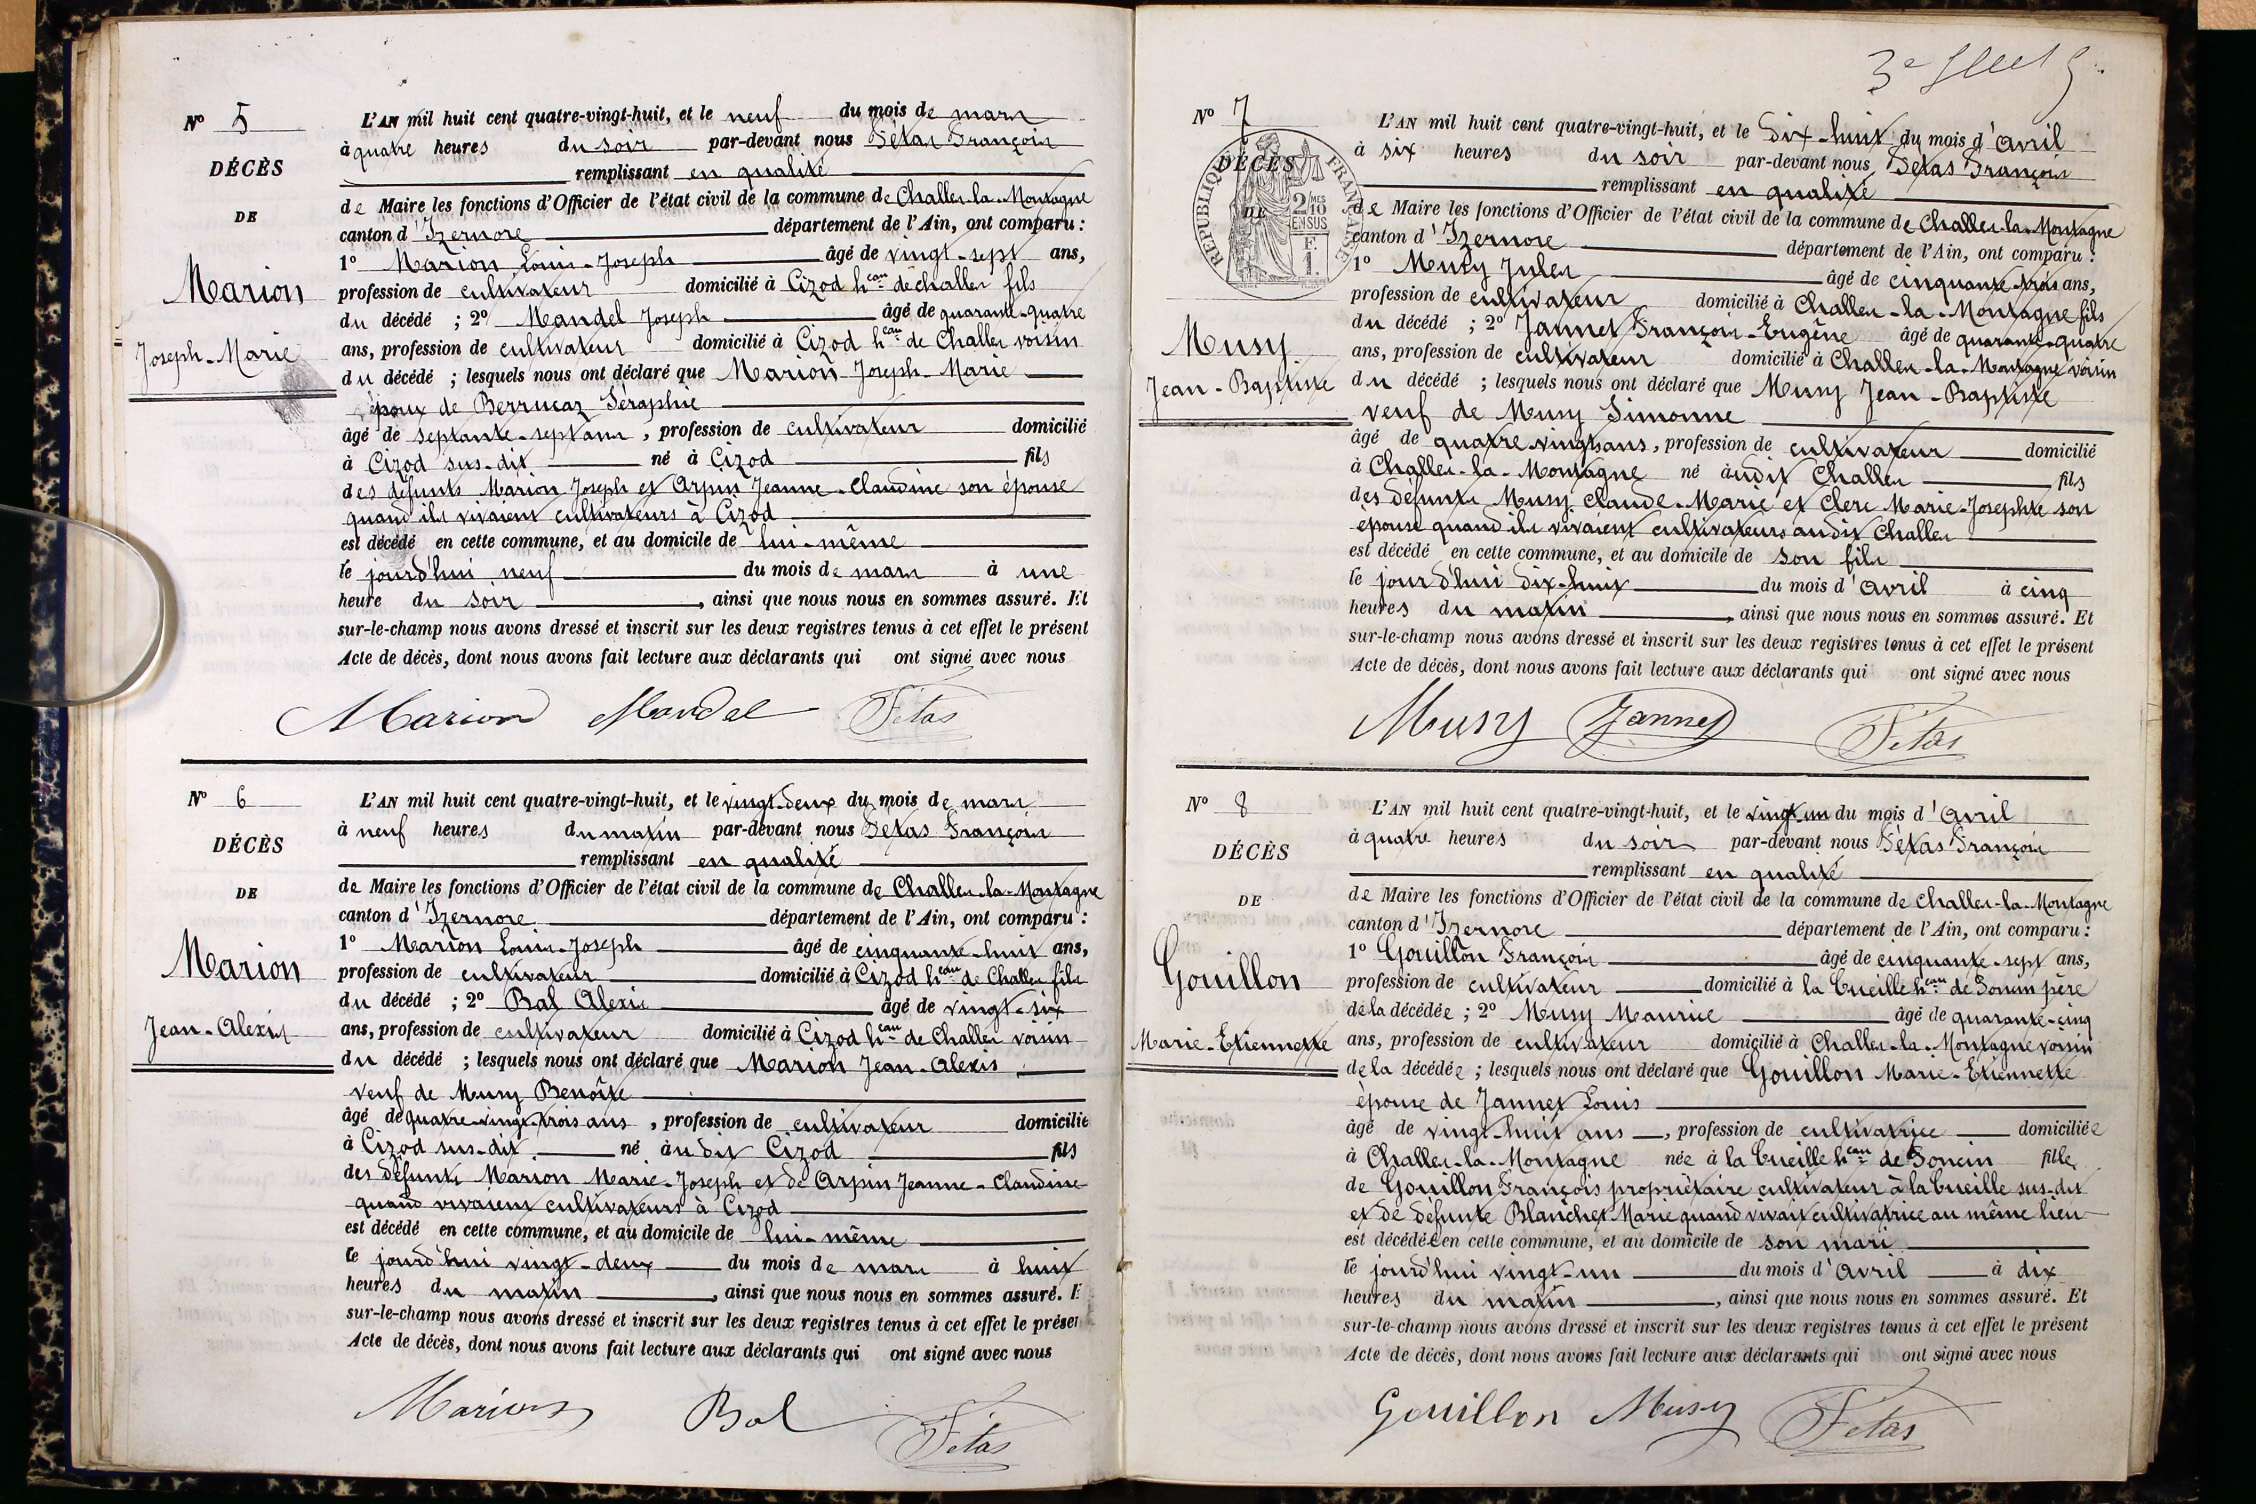 N° 5
DÉCÈS
DE
Marion
Joseph-Marie
L'AN mil huit cent quatre-vingt-huit, et le neuf du mois de mars
à quatre heures du soir par-devant nous Fétas François
remplissant en qualité
de Maire les fonctions d'Officier de l'état civil de la commune de Challes-la-Montagne
canton d'Izernore département de l'Ain, ont comparu :
1° Marion Louis-Joseph âgé de vingt-sept ans,
profession de cultivateur domicilié à Cizod h.eau de challes fils
du décédé ; 2° Mandel Joseph âgé de quarante-quatre
ans, profession de cultivateur domicilié à Cizod h.eau de Challes voisin
du décédé ; lesquels nous ont déclaré que Marion Joseph-Marie
époux de Berrucaz Séraphie
âgé de septante-sept ans, profession de cultivateur domicilié
à Cizod sus-dit né à Cizod fils
des défunts Marion Joseph et Arpin Jeanne-Claudine son épouse
quand ils vivaient cultivateurs à Cizod
est décédé en cette commune, et au domicile de lui-même
le jourd'hui neuf du mois de mars à une
heure du soir, ainsi que nous nous en sommes assuré. Et
sur-le-champ nous avons dressé et inscrit sur les deux registres tenus à cet effet le présent
Acte de décès, dont nous avons fait lecture aux déclarants qui ont signé avec nous
Marion Mandel Fétas
N° 6
DÉCÈS
DE
Marion
Jean-Alexis
L'AN mil huit cent quatre-vingt-huit, et le vingt-deux du mois de mars
à neuf heures du matin par-devant nous Fétas François
remplissant en qualité
de Maire les fonctions d'Officier de l'état civil de la commune de Challes-la-Montagne
canton d'Izernore département de l'Ain, ont comparu :
1° Marion Louis-Joseph âgé de cinquante-huit ans,
profession de cultivateur domicilié à Cizod h.eau de Challes fils
du décédé ; 2° Bal Alexis âgé de vingt-six
ans, profession de cultivateur domicilié à Cizod h.eau de Challes voisin
du décédé ; lesquels nous ont déclaré que Marion Jean-Alexis
veuf de Musy Benoîte
âgé de quatre-vingt-trois ans, profession de cultivateur domicilié
à Cizod sus-dit né audit Cizod fils
des défunts Marion Marie-Joseph et de Arpin Jeanne-Claudine
quand vivaient cultivateurs à Cizod
est décédé en cette commune, et au domicile de lui-même
le jourd'hui vingt-deux du mois de mars à huit
heures du matin, ainsi que nous nous en sommes assuré. E
sur-le-champ nous avons dressé et inscrit sur les deux registres tenus à cet effet le présen
Acte de décès, dont nous avons fait lecture aux déclarants qui ont signé avec nous
Marion Bal Fétas
3e
N° 7
DÉCÈS
DE
RÉPUBLIQUE FRANÇAISE
2 MES
10
EN SUS
F.
1.
Musy
Jean-Baptiste
L'AN mil huit cent quatre-vingt-huit, et le dix-huit du mois d'avril
à six heures du soir par-devant nous Fétas François
remplissant en qualité
de Maire les fonctions d'Officier de l'état civil de la commune de Challes-la-Montagne
canton d'Izernore département de l'Ain, ont comparu :
1° Musy Jules âgé de cinquante-trois ans,
profession de cultivateur domicilié à Challes-la-Montagne fils
du décédé ; 2° Jannet François-Eugène âgé de quarante-quatre
ans, profession de cultivateur domicilié à Challes-la-Montagne voisin
du décédé ; lesquels nous ont déclaré que Musy Jean-Baptiste
veuf de Musy Simonne
âgé de quatre-vingts ans, profession de cultivateur domicilié
à Challes-la-Montagne né audit Challes fils
des défunts Musy Claude-Marie et Clerc Marie-Josephte son
épouse quand ils vivaient cultivateurs audit Challes
est décédé en cette commune, et au domicile de son fils
le jourd'hui dix-huit du mois d'avril à cinq
heures du matin, ainsi que nous nous en sommes assuré. Et
sur-le-champ nous avons dressé et inscrit sur les deux registres tenus à cet effet le présent
Acte de décès, dont nous avons fait lecture aux déclarants qui ont signé avec nous
Musy Jannet Fétas
N° 8
DÉCÈS
DE
Gouillon
Marie-Etiennette
L'AN mil huit cent quatre-vingt-huit, et le vingt-un du mois d'avril
à quatre heures du soir par-devant nous Fétas François
remplissant en qualité
de Maire les fonctions d'Officier de l'état civil de la commune de Challes-la-Montagne
canton d'Izernore département de l'Ain, ont comparu :
1° Gouillon François âgé de cinquante-sept ans,
profession de cultivateur domicilié à la Cueille h.eau de Poncin père
de la décédée ; 2° Musy Maurice âgé de quarante-cinq
ans, profession de cultivateur domicilié à Challes-la-Montagne voisin
de la décédée ; lesquels nous ont déclaré que Gouillon Marie-Etiennette
épouse de Jannet Louis
âgé de vingt-huit ans, profession de cultivatrice domiciliée
à Challes-la-Montagne née à la Cueille h.eau de Poncin fille
de Gouillon François propriétaire cultivateur à la Cueille sus-dit
et de défunte Blanchet Marie quand vivait cultivatrice au même lieu
est décédée en cette commune, et au domicile de son mari
le jourd'hui vingt-un du mois d'avril à dix
heures du matin, ainsi que nous nous en sommes assuré. Et
sur-le-champ nous avons dressé et inscrit sur les deux registres tenus à cet effet le présent
Acte de décès, dont nous avons fait lecture aux déclarants qui ont signé avec nous
Gouillon Musy Fétas